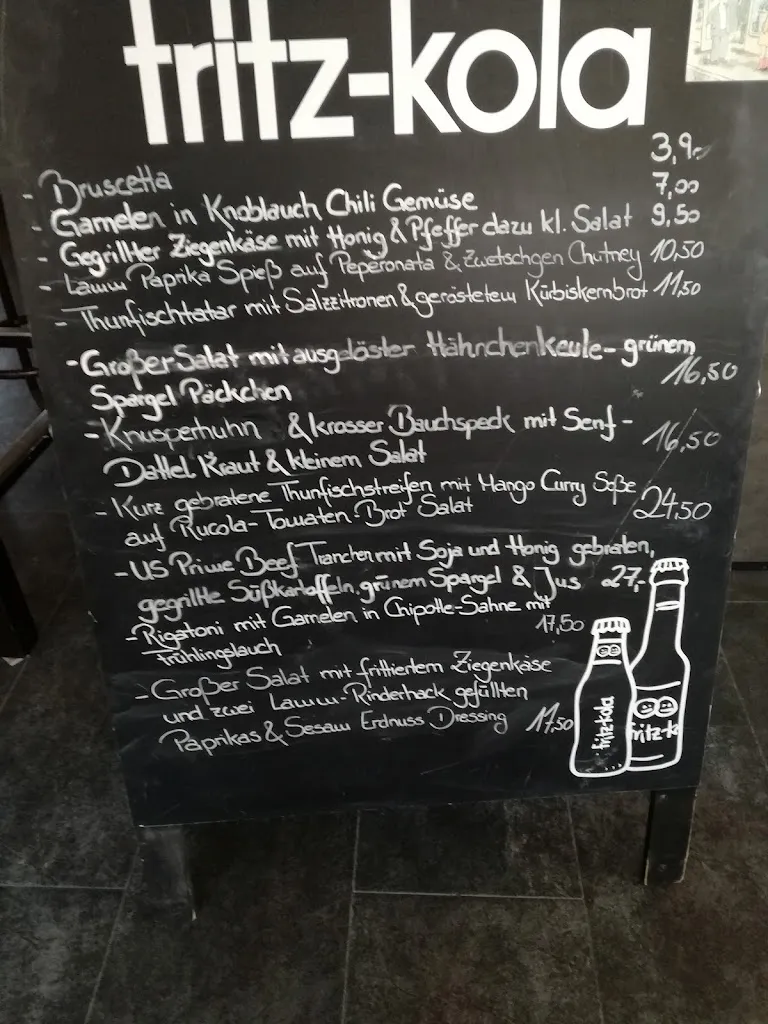 fritz-kola
- Bruscetta 3,90
- Garnelen in Knoblauch Chili Gemüse 7,00
- Gegrillter Ziegenkäse mit Honig & Pfeffer dazu kl. Salat 9,50
- Lamm Paprika Spieß auf Peperonata & Zwetschgen Chutney 10,50
- Thunfischtatar mit Salzzitronen & geröstetem Kürbiskernbrot 11,50
- Großer Salat mit ausgelöster Hähnchenkeule- grünem
Spargel Päckchen 16,50
- Knusperhuhn & krosser Bauchspeck mit Senf-
Dattel Kraut & kleinem Salat 16,50
- Kurz gebratene Thunfischstreifen mit Mango Curry Soße
auf Rucola-Tomaten-Brot Salat 24,50
- US Prime Beef Tranchen mit Soja und Honig gebraten,
gegrillte Süßkartoffeln, grünem Spargel & Jus 27,-
- Rigatoni mit Garnelen in Chipotle-Sahne mit
Frühlingslauch 17,50
- Großer Salat mit frittiertem Ziegenkäse
und zwei Lamm-Rinderhack gefüllten
Paprikas & Sesam Erdnuss Dressing 17,50
fritz-kola
fritz-k